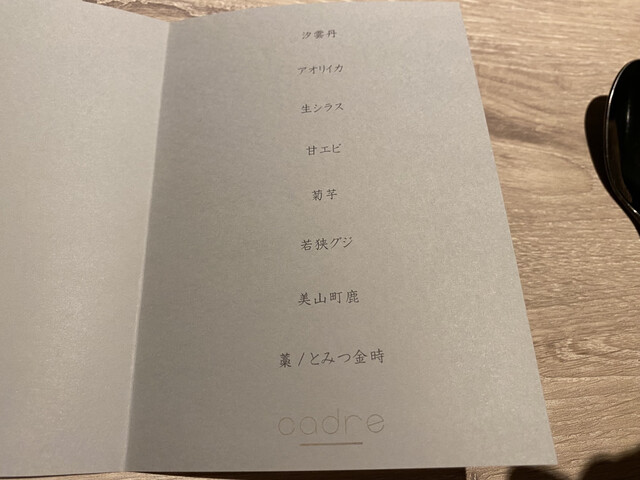 汐雲丹
アオリイカ
生シラス
甘エビ
菊芋
若狭グジ
美山町鹿
藁/とみつ金時
cadre